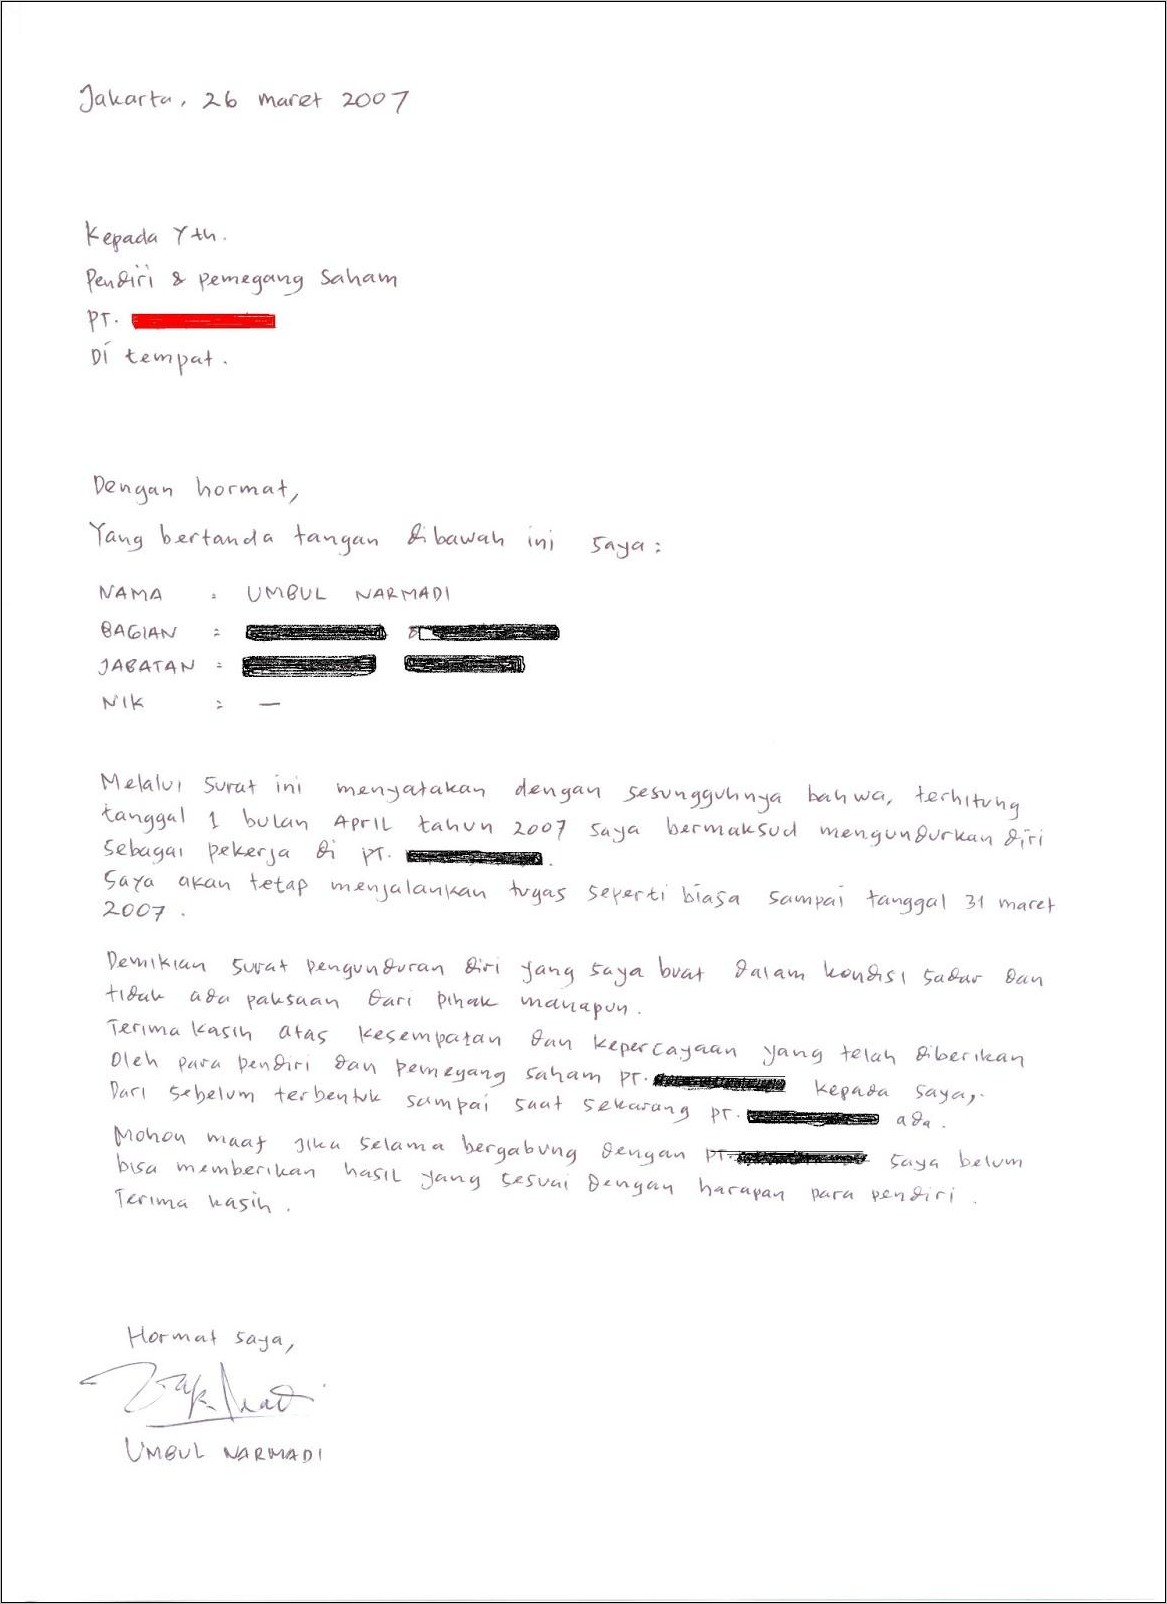 Jakarta, 26 maret 2007
Kepada Yth.
Pendiri & pemegang saham
PT.
Di tempat.
Dengan hormat,
Yang bertanda tangan dibawah ini saya:
NAMA : UMBUL NARMADI
BAGIAN :
JABATAN :
NIK : —
Melalui surat ini menyatakan dengan sesungguhnya bahwa, terhitung
tanggal 1 bulan APRIL tahun 2007 saya bermaksud mengundurkan diri
sebagai pekerja di PT. .
Saya akan tetap menjalankan tugas seperti biasa sampai tanggal 31 maret
2007.
Demikian surat pengunduran diri yang saya buat dalam kondisi sadar dan
tidak ada paksaan dari pihak manapun.
Terima kasih atas kesempatan dan kepercayaan yang telah diberikan
oleh para pendiri dan pemegang saham PT. kepada saya,.
Dari sebelum terbentuk sampai saat sekarang PT. ada.
Mohon maaf jika selama bergabung dengan PT. saya belum
bisa memberikan hasil yang sesuai dengan harapan para pendiri.
Terima kasih.
Hormat saya,
UMBUL NARMADI